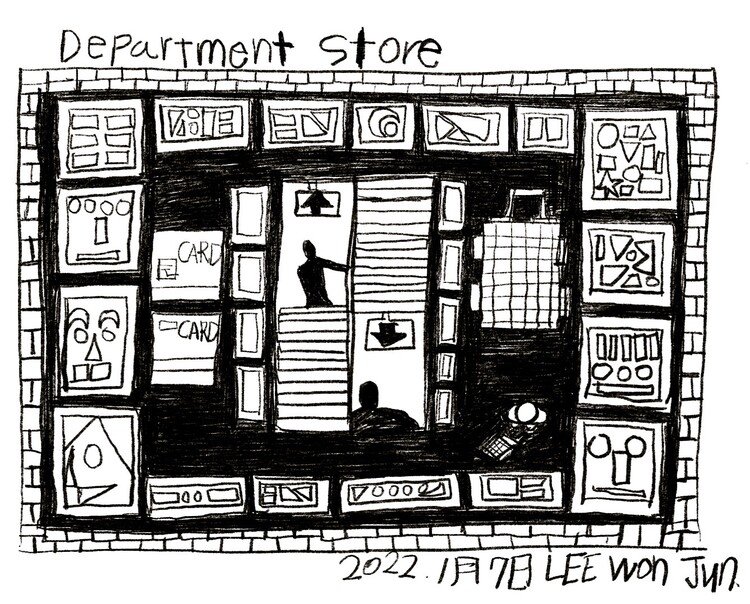 Department store
CARD
CARD
2022.1月7日 LEE Won Jun.